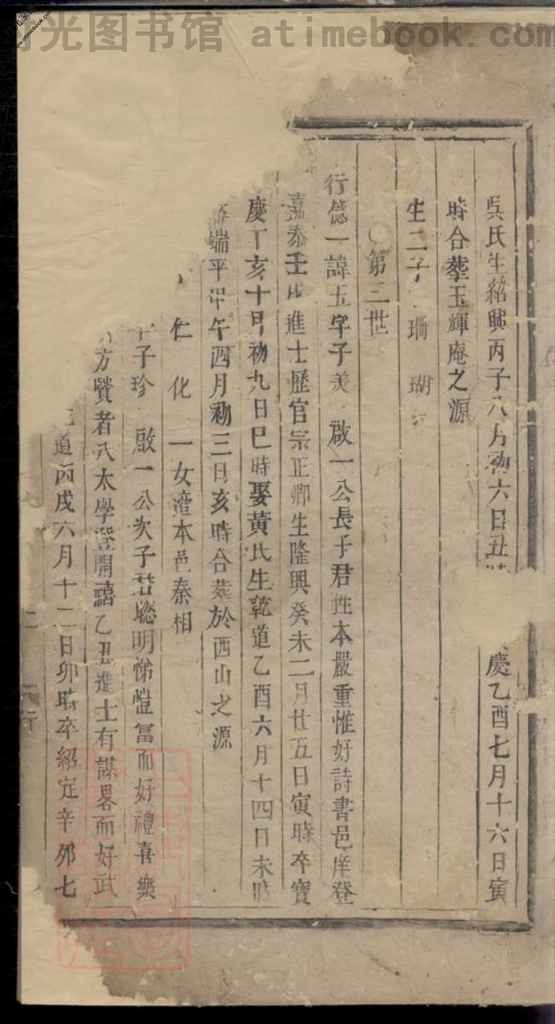 时光图书馆 atimebook.com
吳氏生紹興丙子八月初六日丑時 慶乙酉七月十六日寅
時合塟玉輝庵之源
生二子 珊 瑚
○第三世
行億一諱玉字子美 啟一公長子君性本嚴重惟好詩書邑庠登
嘉泰壬戌進士歷官宗正卿生隆興癸未二月廿五日寅時卒寶
慶丁亥十月初九日巳時娶黃氏生乾道乙酉六月十四日未時
端平甲午四月初三日亥時合塟於西山之源
仁 化 一女適本邑秦相
字子珍 啟一公次子君聰明悌愷富而好禮喜樂
方賢者入太學登開禧乙丑進士有謀畧而好武
道丙戌六月十二日卯時卒紹定辛卯七